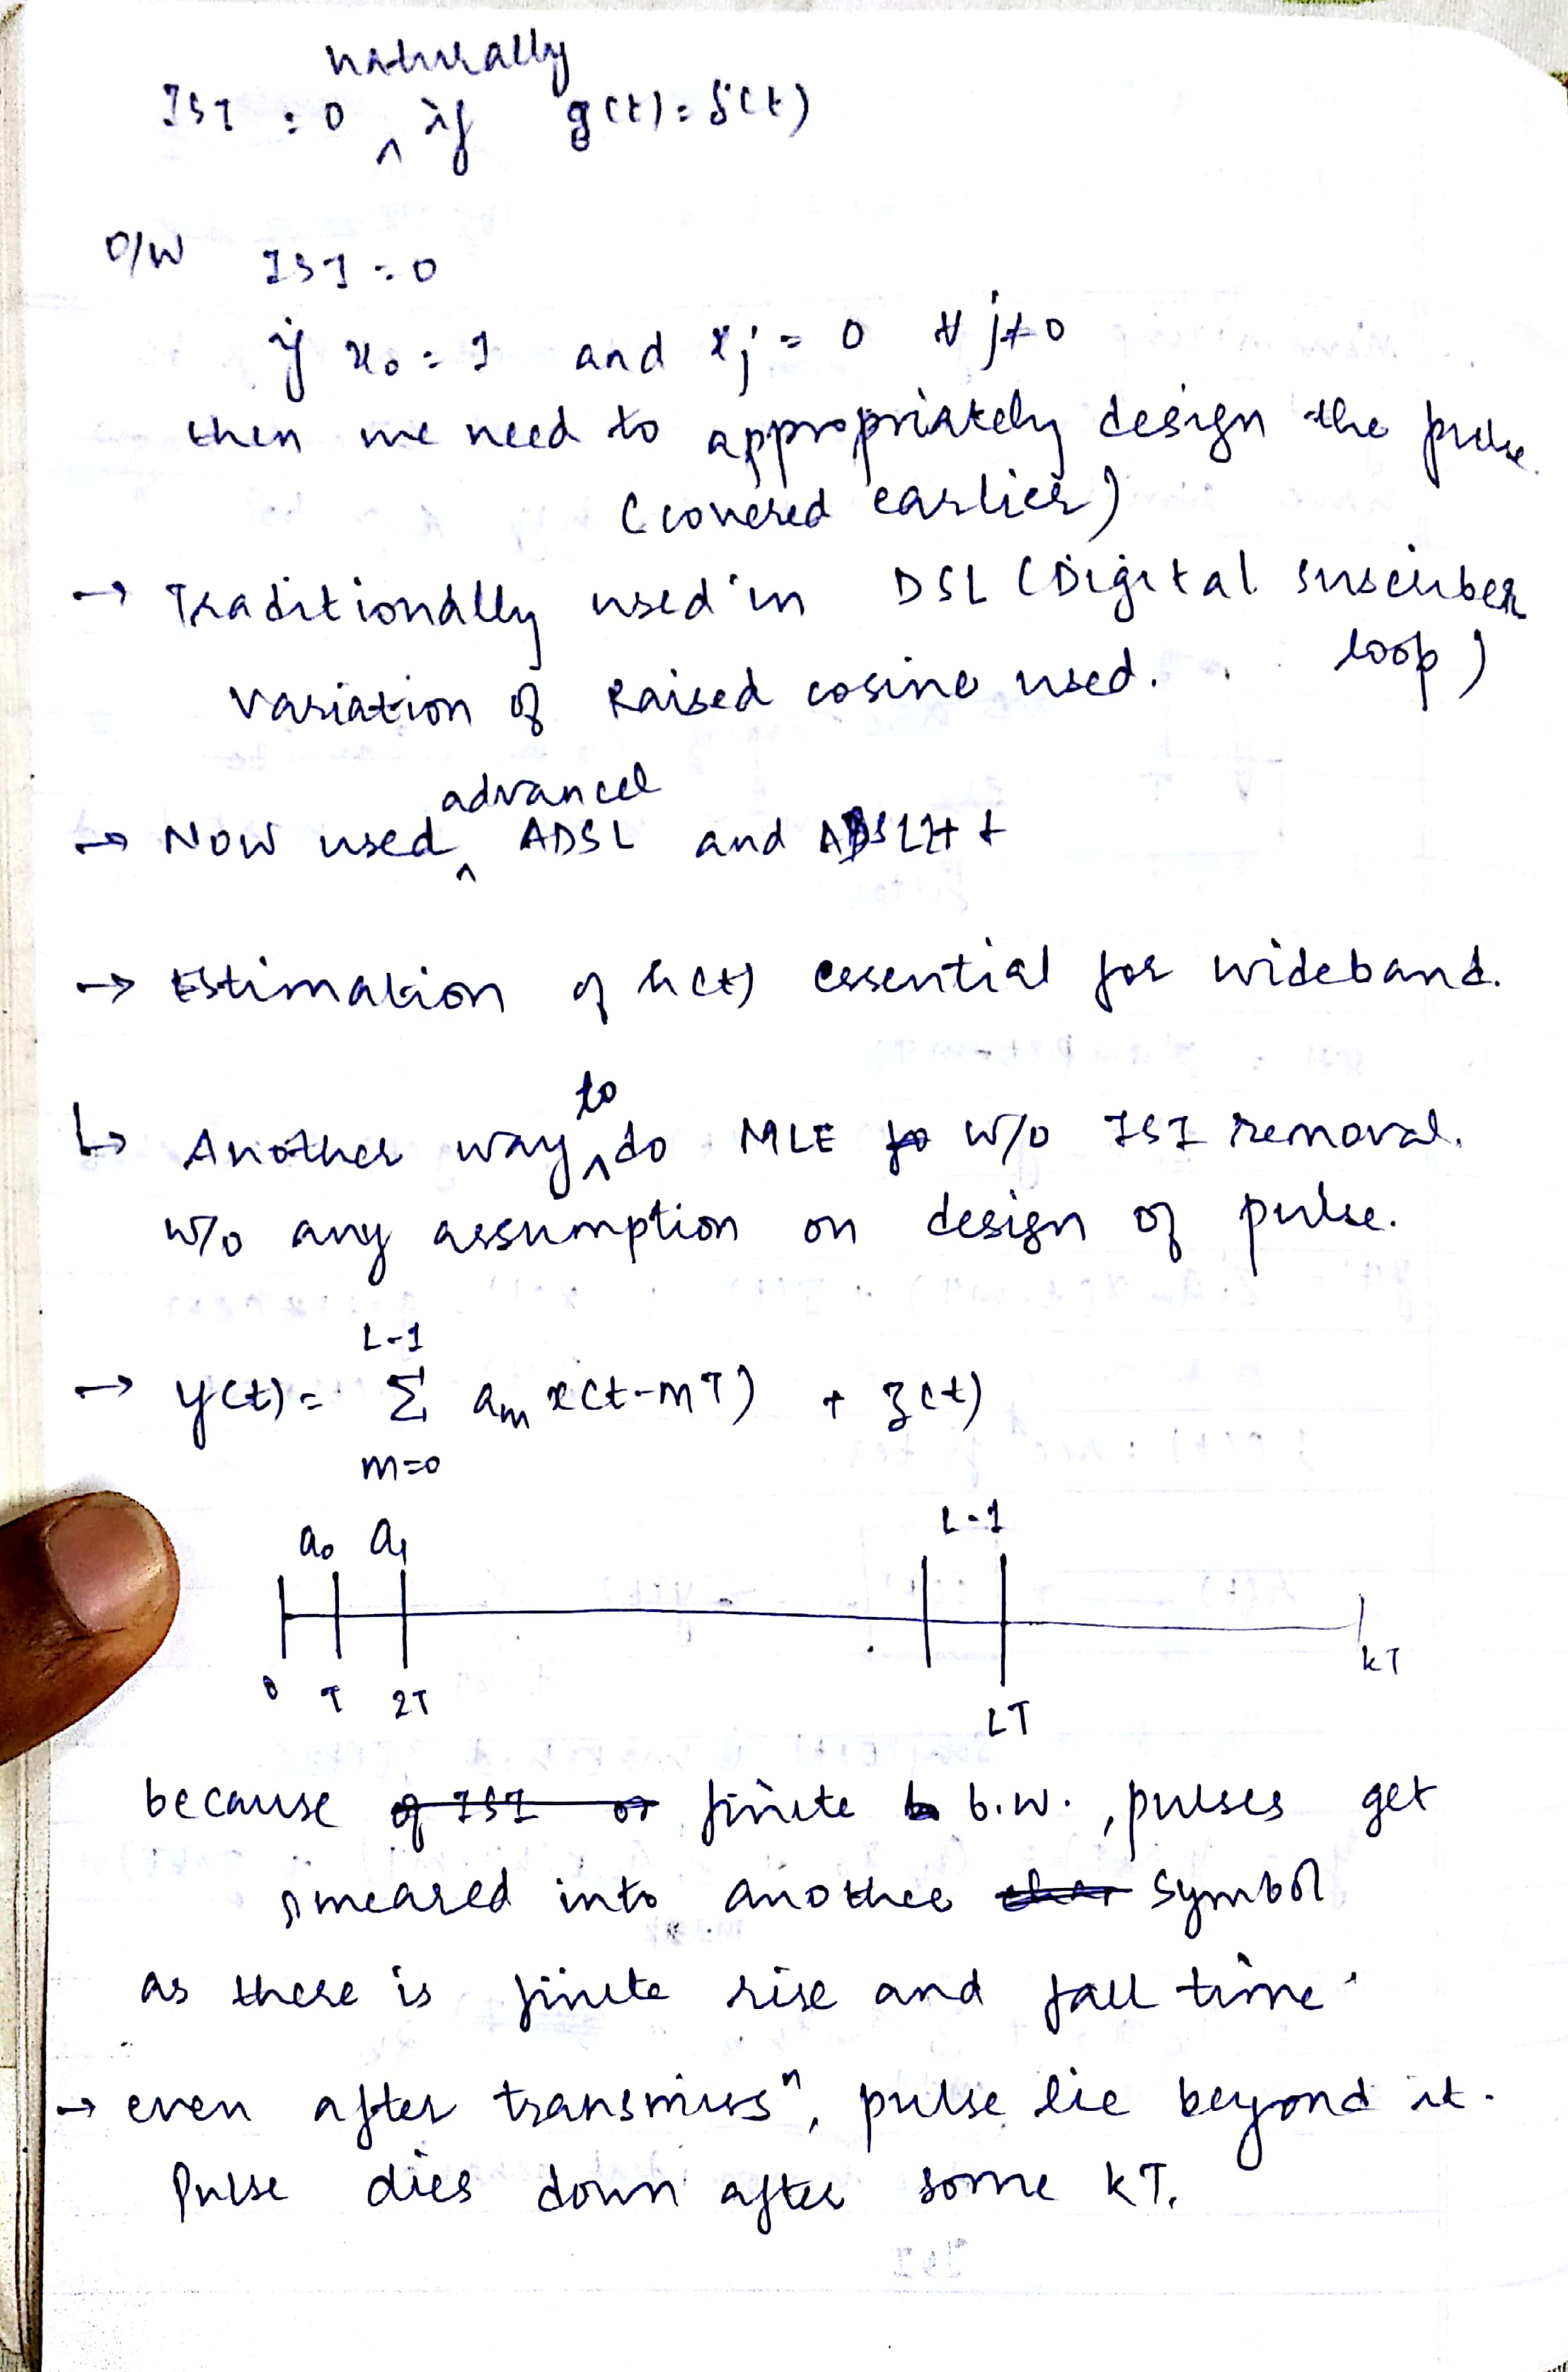 ISI = 0 ^ naturally if g(t) = δ(t)
O/W ISI = 0
if x₀ = 1 and xⱼ = 0 ∀ j≠0
then we need to appropriately design the pulse.
(covered earlier)
→ Traditionally used in DSL (Digital suscriber loop)
variation of Raised cosine used.
→ Now used ^ advanced ADSL and ADSL2++
→ Estimation of h(t) essential for wideband.
↳ Another way ^ to do MLE w/o ISI removal.
w/o any assumption on design of pulse.
→ y(t) = Σ_{m=0}^{L-1} aₘ x(t-mT) + z(t)
a₀ a₁ L-1
0 T 2T LT kT
because ~~of ISI or~~ finite b.w., pulses get
smeared into another symbol
as there is finite rise and fall time.
→ even after transmissⁿ, pulse lie beyond it.
Pulse dies down after some kT.